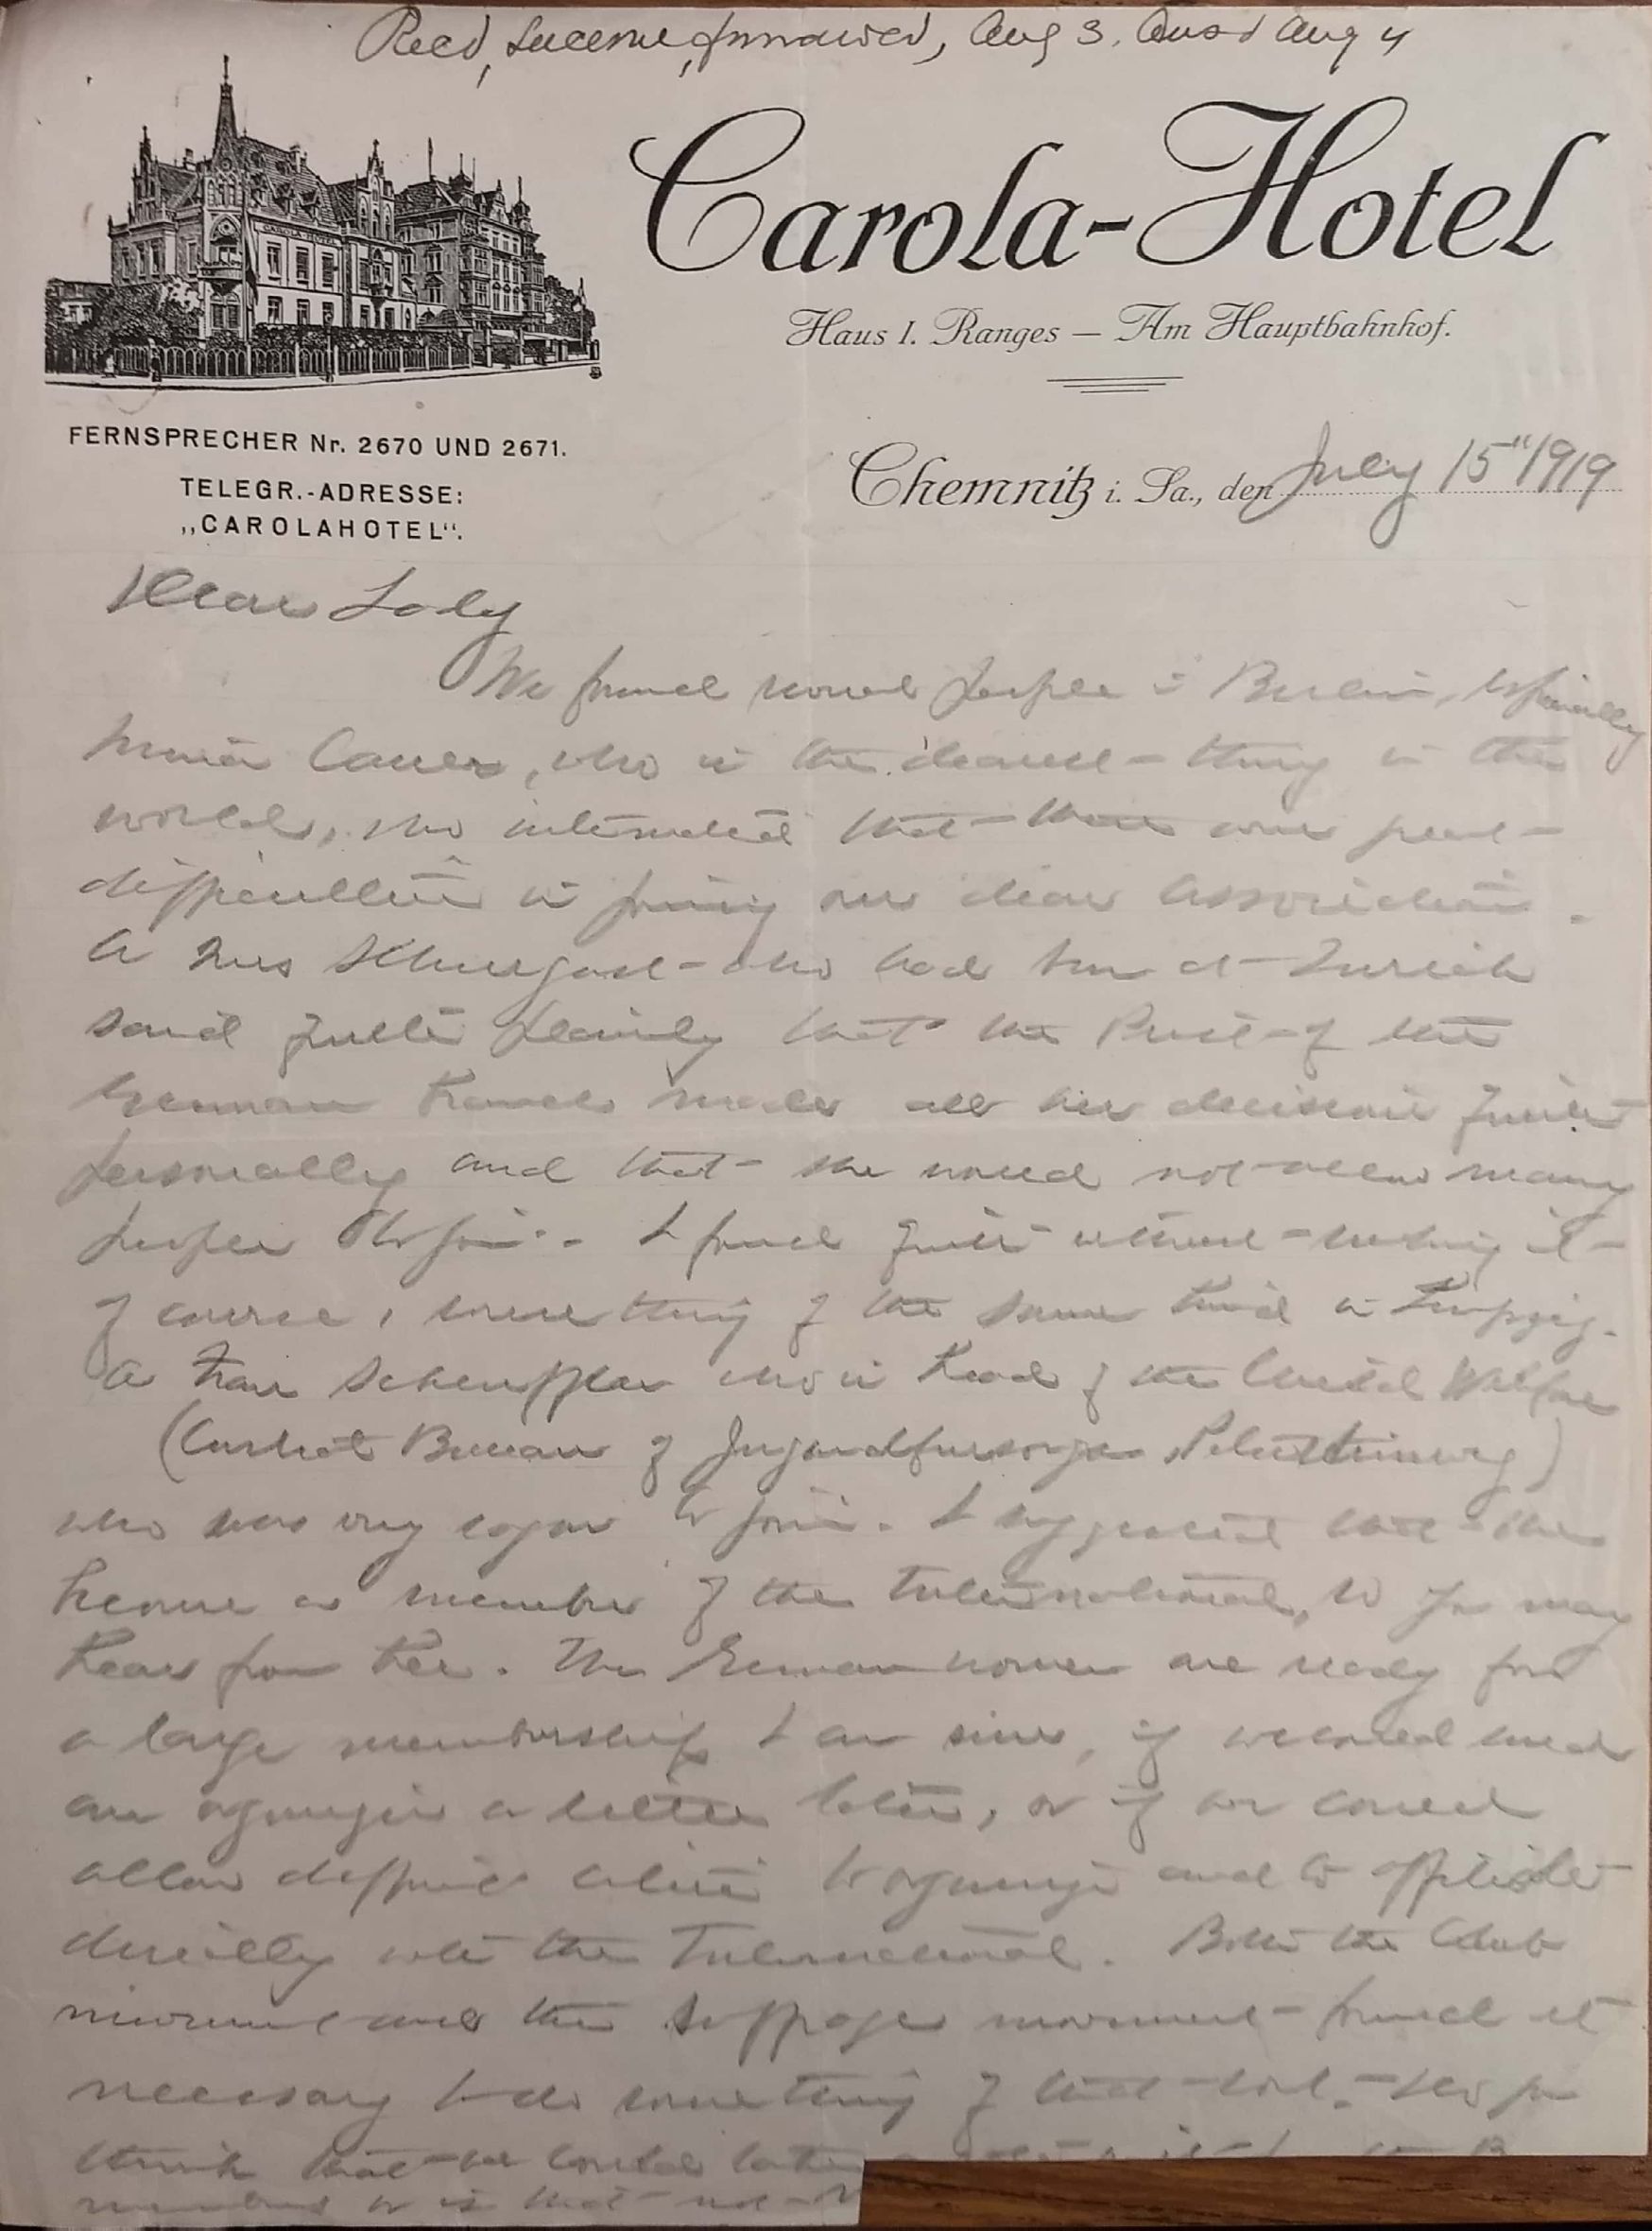 Recd, Lucerne, forwarded, Aug 3. Ansd Aug 4
CAROLA-HOTEL
Carola-Hotel
Haus I. Ranges — Am Hauptbahnhof.
FERNSPRECHER Nr. 2670 UND 2671.
TELEGR.-ADRESSE:
„CAROLAHOTEL“.
Chemnitz i. Sa., den July 15" 1919
Dear
We found several people in Berlin, especially
Minna Cauer, who is the dearest thing in the
world, who intimated that there were great
difficulties in joining our dear association.
A Miss who had been at Zurich
said quite plainly that the Pres of the
German branch makes all her decisions quite
personally and that she would not allow many
people to join. - I found quite without seeking it
of course, something of the same kind in Leipzig.
A Frau who is head of the United Welfare
Bureau of Jugendfursorge
who was very eager to join. I suggested that she
become a member of the International, so you may
hear from her. The German women are ready for
a large membership I am sure, if we could send
an organizer a little later, or if we could
allow different cities to organize and to affiliate
directly with the International. Both the Club
movement and the Suffrage movement found it
necessary to do something of that sort. - Do you
think that we could later
members or is that not